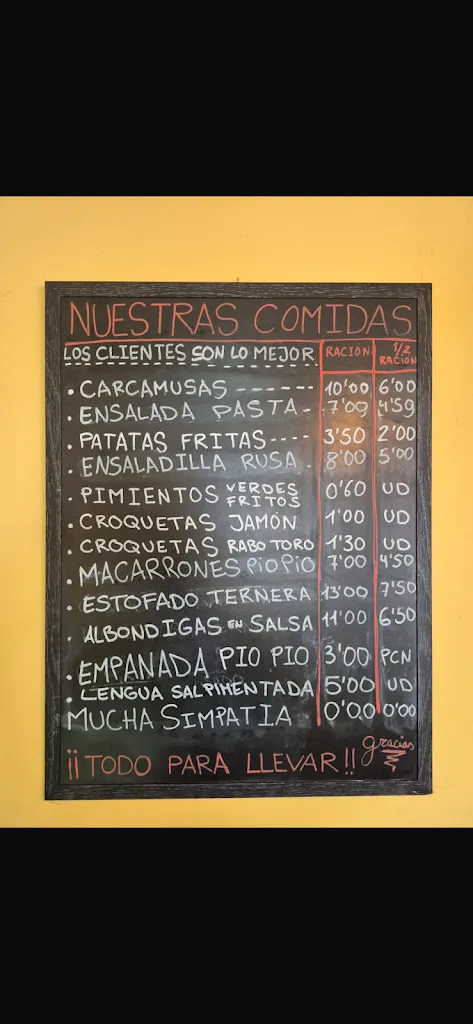 NUESTRAS COMIDAS
LOS CLIENTES SON LO MEJOR RACIÓN 1/2 RACIÓN
• CARCAMUSAS ------ 10'00 6'00
• ENSALADA PASTA - 7'00 4'59
• PATATAS FRITAS ---- 3'50 2'00
• ENSALADILLA RUSA . 8'00 5'00
• PIMIENTOS VERDES FRITOS 0'60 UD
• CROQUETAS JAMÓN 1'00 UD
• CROQUETAS RABO TORO 1'30 UD
• MACARRONES PIO PIO 7'00 4'50
• ESTOFADO TERNERA 13'00 7'50
• ALBONDIGAS EN SALSA 11'00 6'50
• EMPANADA PIO PIO 3'00 PCN
• LENGUA SALPIMENTADA 5'00 UD
MUCHA SIMPATIA 0'00 0'00
¡¡TODO PARA LLEVAR!! gracias